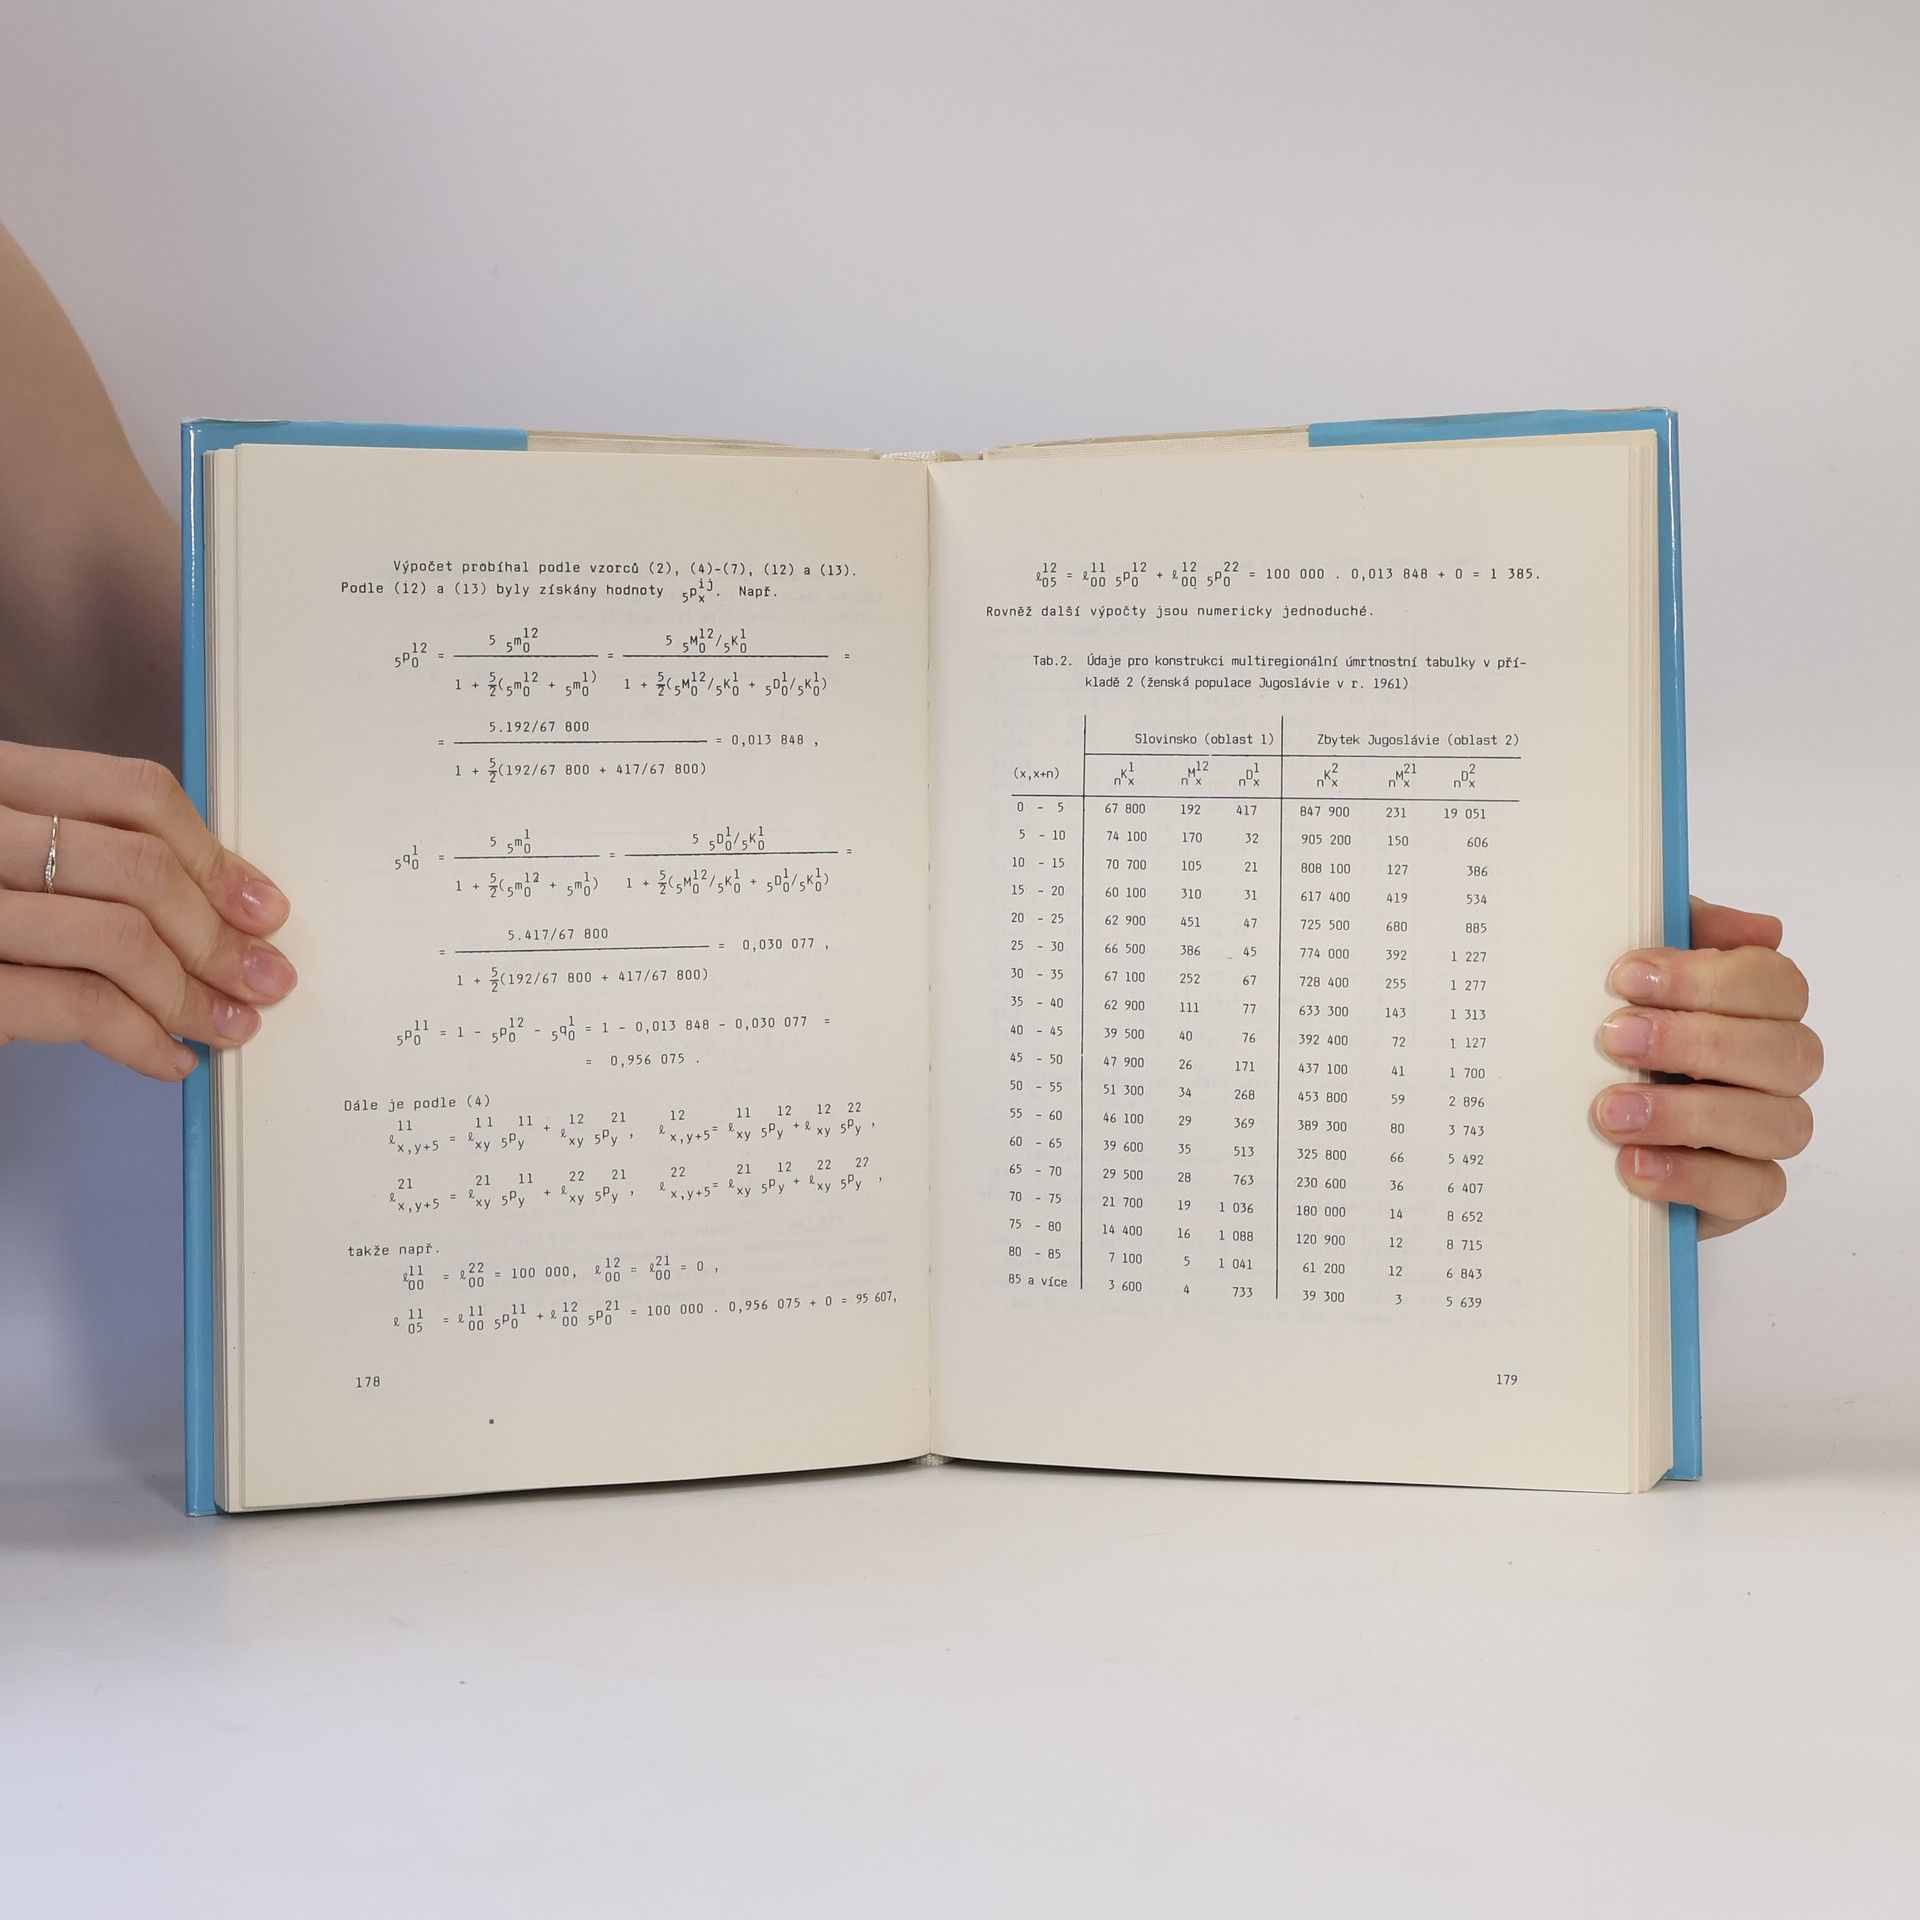 Výpočet probíhal podle vzorců (2), (4)-(7), (12) a (13).
Podle (12) a (13) byly získány hodnoty ₅pₓⁱʲ. Např.
₅p₀¹² = (5 ₅m₀¹²) / (1 + 5/2(₅m₀¹² + ₅m₀¹)) = (5 ₅M₀¹²/₅K₀¹) / (1 + 5/2(₅M₀¹²/₅K₀¹ + ₅D₀¹/₅K₀¹)) =
= (5.192/67 800) / (1 + 5/2(192/67 800 + 417/67 800)) = 0,013 848 ,
₅q₀¹ = (5 ₅m₀¹) / (1 + 5/2(₅m₀¹² + ₅m₀¹)) = (5 ₅D₀¹/₅K₀¹) / (1 + 5/2(₅M₀¹²/₅K₀¹ + ₅D₀¹/₅K₀¹)) =
= (5.417/67 800) / (1 + 5/2(192/67 800 + 417/67 800)) = 0,030 077 ,
₅p₀¹¹ = 1 - ₅p₀¹² - ₅q₀¹ = 1 - 0,013 848 - 0,030 077 =
= 0,956 075 .
Dále je podle (4)
ℓ¹¹_x,y+5 = ℓ¹¹_xy ₅p¹¹_y + ℓ¹²_xy ₅p²¹_y , ℓ¹²_x,y+5 = ℓ¹¹_xy ₅p¹²_y + ℓ¹²_xy ₅p²²_y ,
ℓ²¹_x,y+5 = ℓ²¹_xy ₅p¹¹_y + ℓ²²_xy ₅p²¹_y , ℓ²²_x,y+5 = ℓ²¹_xy ₅p¹²_y + ℓ²²_xy ₅p²²_y ,
takže např.
ℓ¹¹₀₀ = ℓ²²₀₀ = 100 000, ℓ¹²₀₀ = ℓ²¹₀₀ = 0 ,
ℓ¹¹₀₅ = ℓ¹¹₀₀ ₅p₀¹¹ + ℓ¹²₀₀ ₅p₀²¹ = 100 000 . 0,956 075 + 0 = 95 607,
178
ℓ¹²₀₅ = ℓ¹¹₀₀ ₅p₀¹² + ℓ¹²₀₀ ₅p₀²² = 100 000 . 0,013 848 + 0 = 1 385.
Rovněž další výpočty jsou numericky jednoduché.
Tab.2. Údaje pro konstrukci multiregionální úmrtnostní tabulky v pří-
kladě 2 (ženská populace Jugoslávie v r. 1961)
Slovinsko (oblast 1) Zbytek Jugoslávie (oblast 2)
(x,x+n) ₙKₓ¹ ₙMₓ¹² ₙDₓ¹ ₙKₓ² ₙMₓ²¹ ₙDₓ²
0 - 5 67 800 192 417 847 900 231 19 051
5 - 10 74 100 170 32 905 200 150 606
10 - 15 70 700 105 21 808 100 127 386
15 - 20 60 100 310 31 617 400 419 534
20 - 25 62 900 451 47 725 500 680 885
25 - 30 66 500 386 45 774 000 392 1 227
30 - 35 67 100 252 67 728 400 255 1 277
35 - 40 62 900 111 77 633 300 143 1 313
40 - 45 39 500 40 76 392 400 72 1 127
45 - 50 47 900 26 171 437 100 41 1 700
50 - 55 51 300 34 268 453 800 59 2 896
55 - 60 46 100 29 369 389 300 80 3 743
60 - 65 39 600 35 513 325 800 66 5 492
65 - 70 29 500 28 763 230 600 36 6 407
70 - 75 21 700 19 1 036 180 000 14 8 652
75 - 80 14 400 16 1 088 120 900 12 8 715
80 - 85 7 100 5 1 041 61 200 12 6 843
85 a více 3 600 4 733 39 300 3 5 639
179